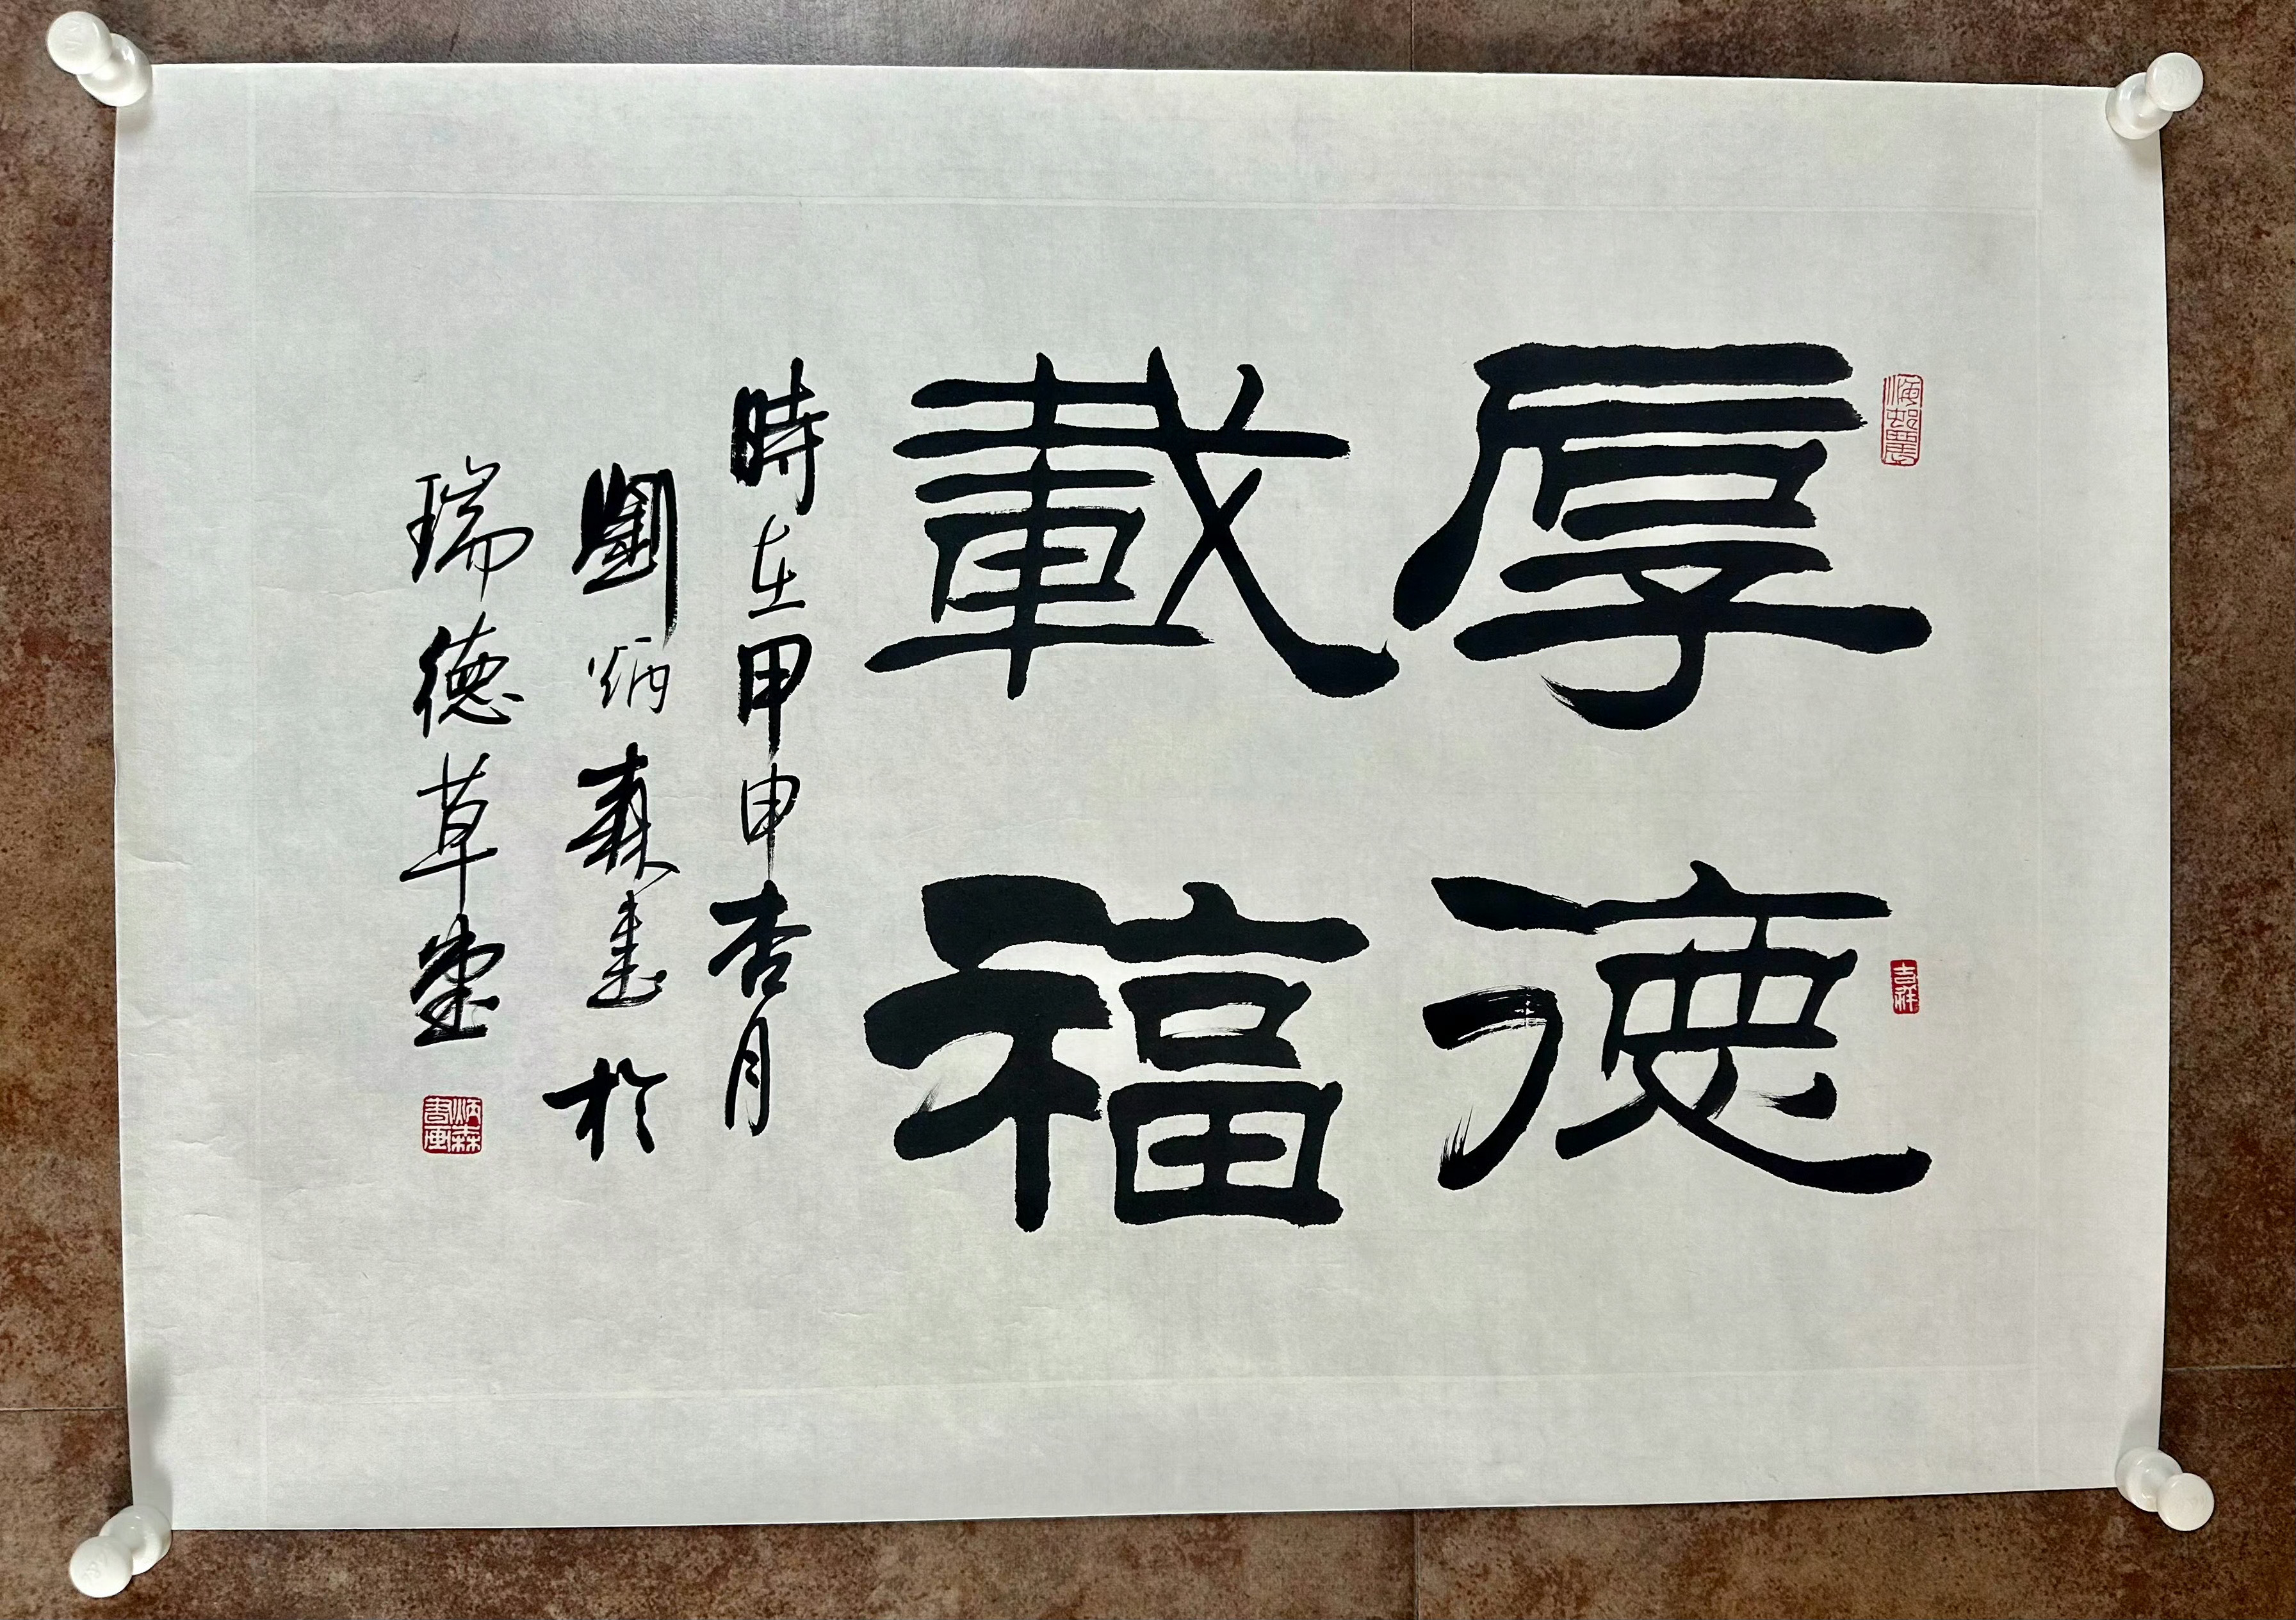 厚德
載福
時在甲申杏月
劉炳森書於
瑞德草堂
吉祥
炳森
書画